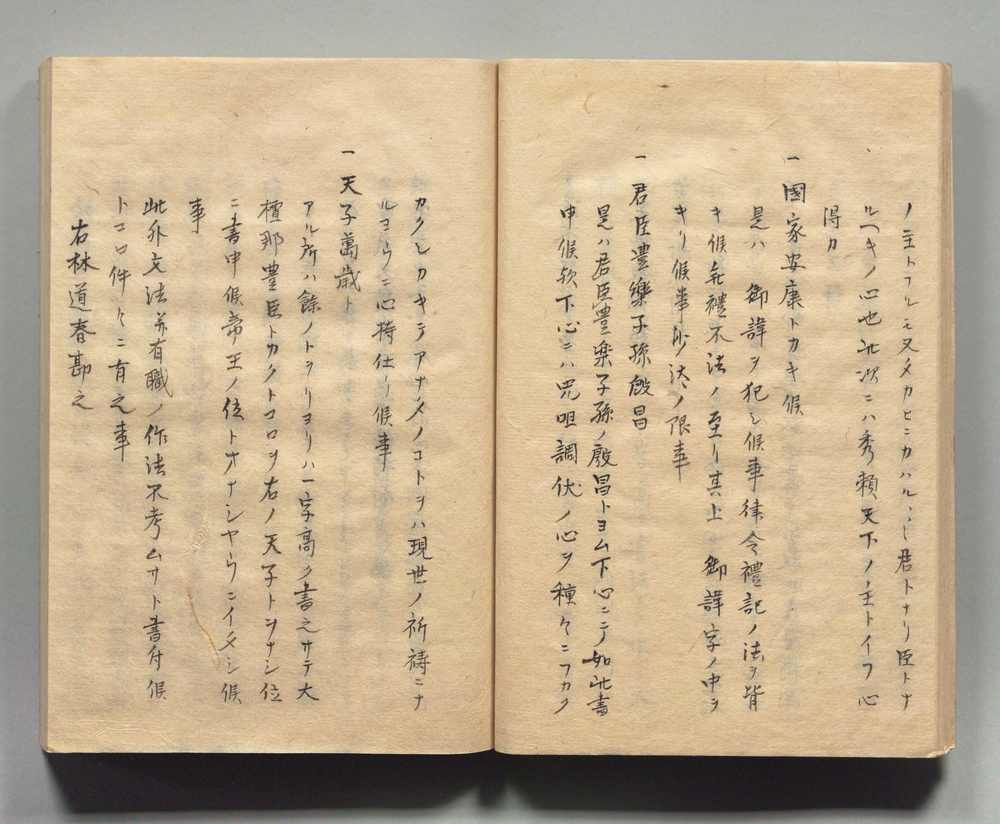 ノ主トフルモ又メカヒニカハルヽ君トナリ臣トナ
ルヘキノ心也此次ニハ秀頼天下ノ主トイフ心
得カ
一國家安康トカキ候
是ハ御諱ヲ犯シ候事律令禮記ノ法ヲ背
キ候無禮不法ノ至リ其上御諱字ノ中ヲ
キリ候事沙汰ノ限事
一君臣豊樂子孫殷昌
是ハ君臣豊楽子孫ノ殷昌トヨム下心ニテ如此書
申候歟下心ニハ咒咀調伏ノ心ヲ種々ニフカク
カクシカキテアナメノコトヲハ現世ノ祈祷ニナ
ルヨウニ心持仕リ候事
一天子萬歳ト
アル所ハ餘ノトヲリヨリハ一字高ク書之サテ大
檀那豊臣トカクトコロヲ右ノ天子トヲナシ位
ニ書申候帝王ノ位トオナシヤウニイタシ候
事
此外文法并有職ノ作法不考ムサト書付候
トコロ件々ニ有之事
右林道春勘之